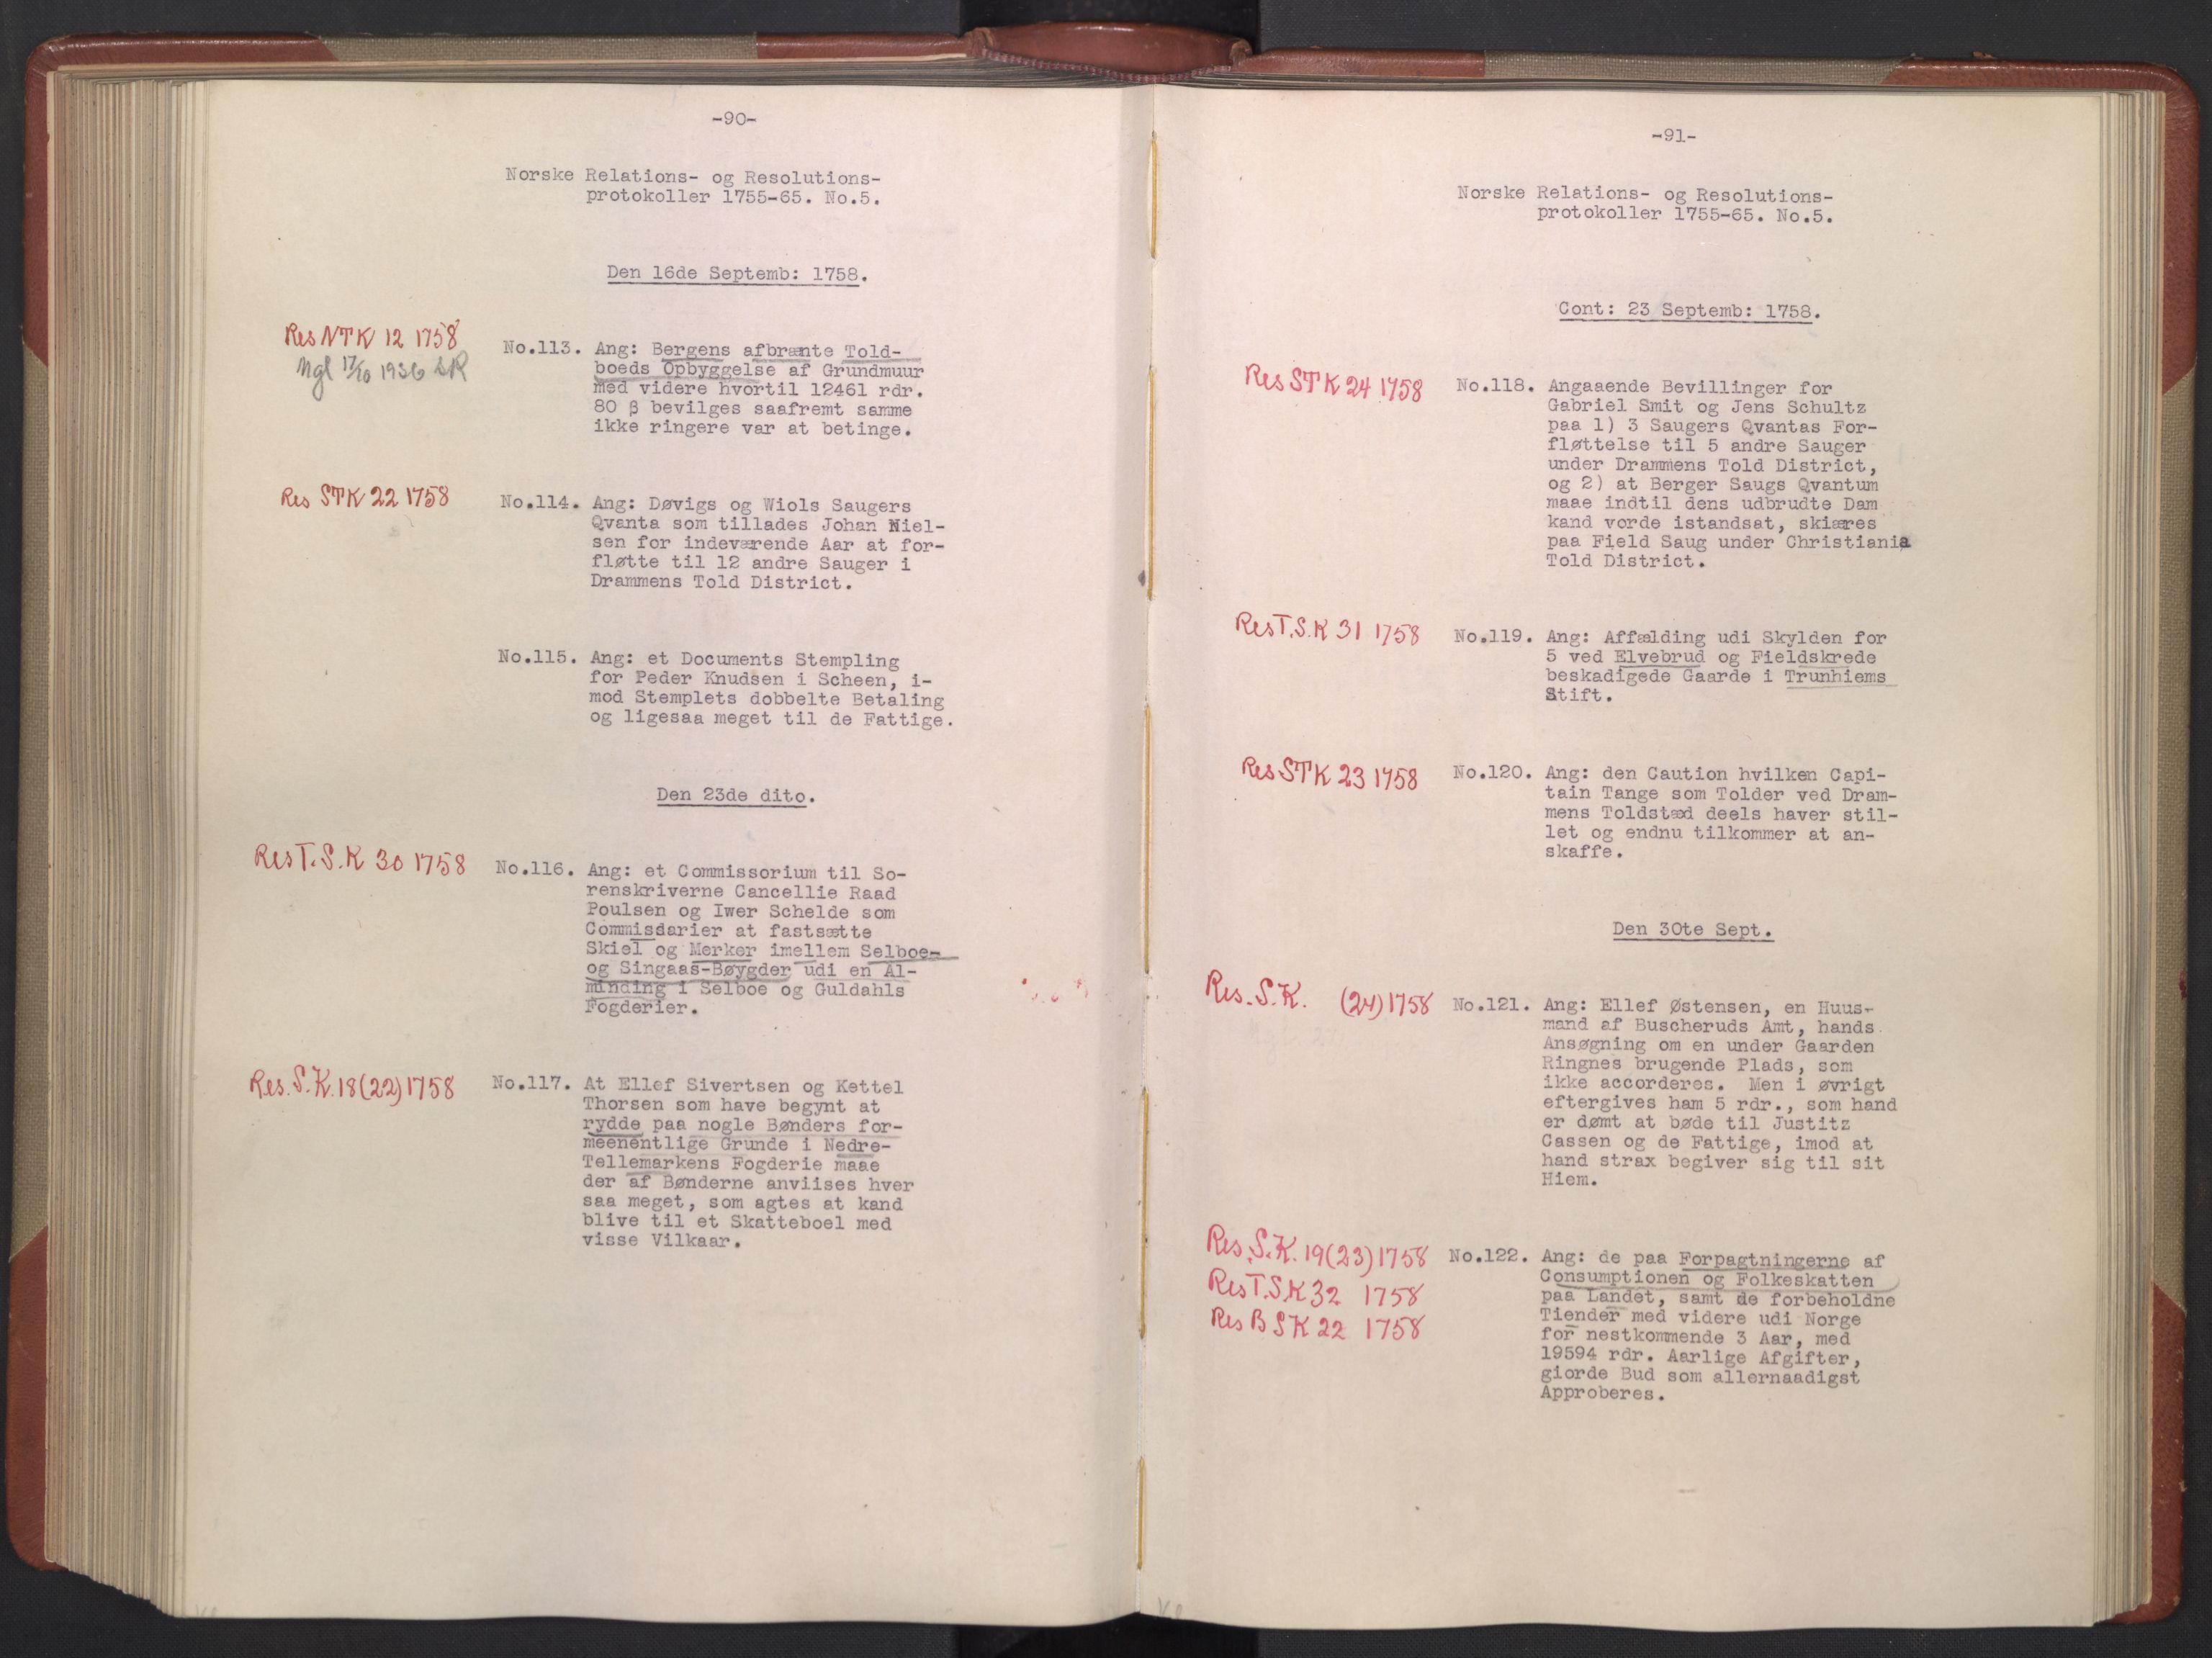 -90-
Norske Relations- og Resolutions-
protokoller 1755-65. No.5.
Den 16de Septemb: 1758.
Res NTK 12 1758
Ngl 17/10 1936
No.113. Ang: Bergens afbrænte Told-
boeds Opbyggelse af Grundmuur
med videre hvortil 12461 rdr.
80 β bevilges saafremt samme
ikke ringere var at betinge.
Res STK 22 1758
No.114. Ang: Døvigs og Wiols Saugers
Qvanta som tillades Johan Niel-
sen for indeværende Aar at for-
fløtte til 12 andre Sauger i
Drammens Told District.
No.115. Ang: et Documents Stempling
for Peder Knudsen i Scheen, i-
mod Stemplets dobbelte Betaling
og ligesaa meget til de Fattige.
Den 23de dito.
Res T.S.K 30 1758
No.116. Ang: et Commissorium til So-
renskriverne Cancellie Raad
Poulsen og Iwer Schelde som
Commisdarier at fastsætte
Skiel og Merker imellem Selboe-
og Singaas-Bøygder udi en Al-
minding i Selboe og Guldahls
Fogderier.
Res. S.K. 18(22) 1758
No.117. At Ellef Sivertsen og Kettel
Thorsen som have begynt at
rydde paa nogle Bønders for-
meenentlige Grunde i Nedre-
Tellemarkens Fogderie maae
der af Bønderne anviises hver
saa meget, som agtes at kand
blive til et Skatteboel med
visse Vilkaar.
-91-
Norske Relations- og Resolutions-
protokoller 1755-65. No.5.
Cont: 23 Septemb: 1758.
Res STK 24 1758
No.118. Angaaende Bevillinger for
Gabriel Smit og Jens Schultz
paa 1) 3 Saugers Qvantas For-
fløttelse til 5 andre Sauger
under Drammens Told District,
og 2) at Berger Saugs Qvantum
maae indtil dens udbrudte Dam
kand vorde istandsat, skiæres
paa Field Saug under Christiania
Told District.
Res T.S.K 31 1758
No.119. Ang: Affælding udi Skylden for
5 ved Elvebrud og Fieldskrede
beskadigede Gaarde i Trunhiems
Stift.
Res STK 23 1758
No.120. Ang: den Caution hvilken Capi-
tain Tange som Tolder ved Dram-
mens Toldstæd deels haver stil-
let og endnu tilkommer at an-
skaffe.
Den 30te Sept.
Res. S.K. (24) 1758
No.121. Ang: Ellef Østensen, en Huus-
mand af Buscheruds Amt, hands
Ansøgning om en under Gaarden
Ringnes brugende Plads, som
ikke accorderes. Men i øvrigt
eftergives ham 5 rdr., som hand
er dømt at bøde til Justitz
Cassen og de Fattige, imod at
hand strax begiver sig til sit
Hiem.
Res. S.K. 19(23) 1758
Res T.S.K 32 1758
Res B SK 22 1758
No.122. Ang: de paa Forpagtningerne af
Consumptionen og Folkeskatten
paa Landet, samt de forbeholdne
Tiender med videre udi Norge
for nestkommende 3 Aar, med
19594 rdr. Aarlige Afgifter,
giorde Bud som allernaadigst
Approberes.